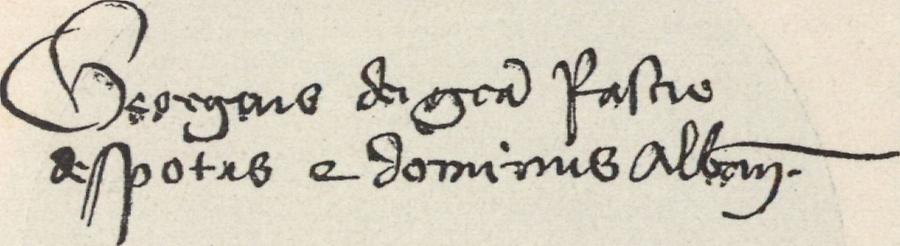 Georgius dei gra Rascie
despotus e dominus Albanie.